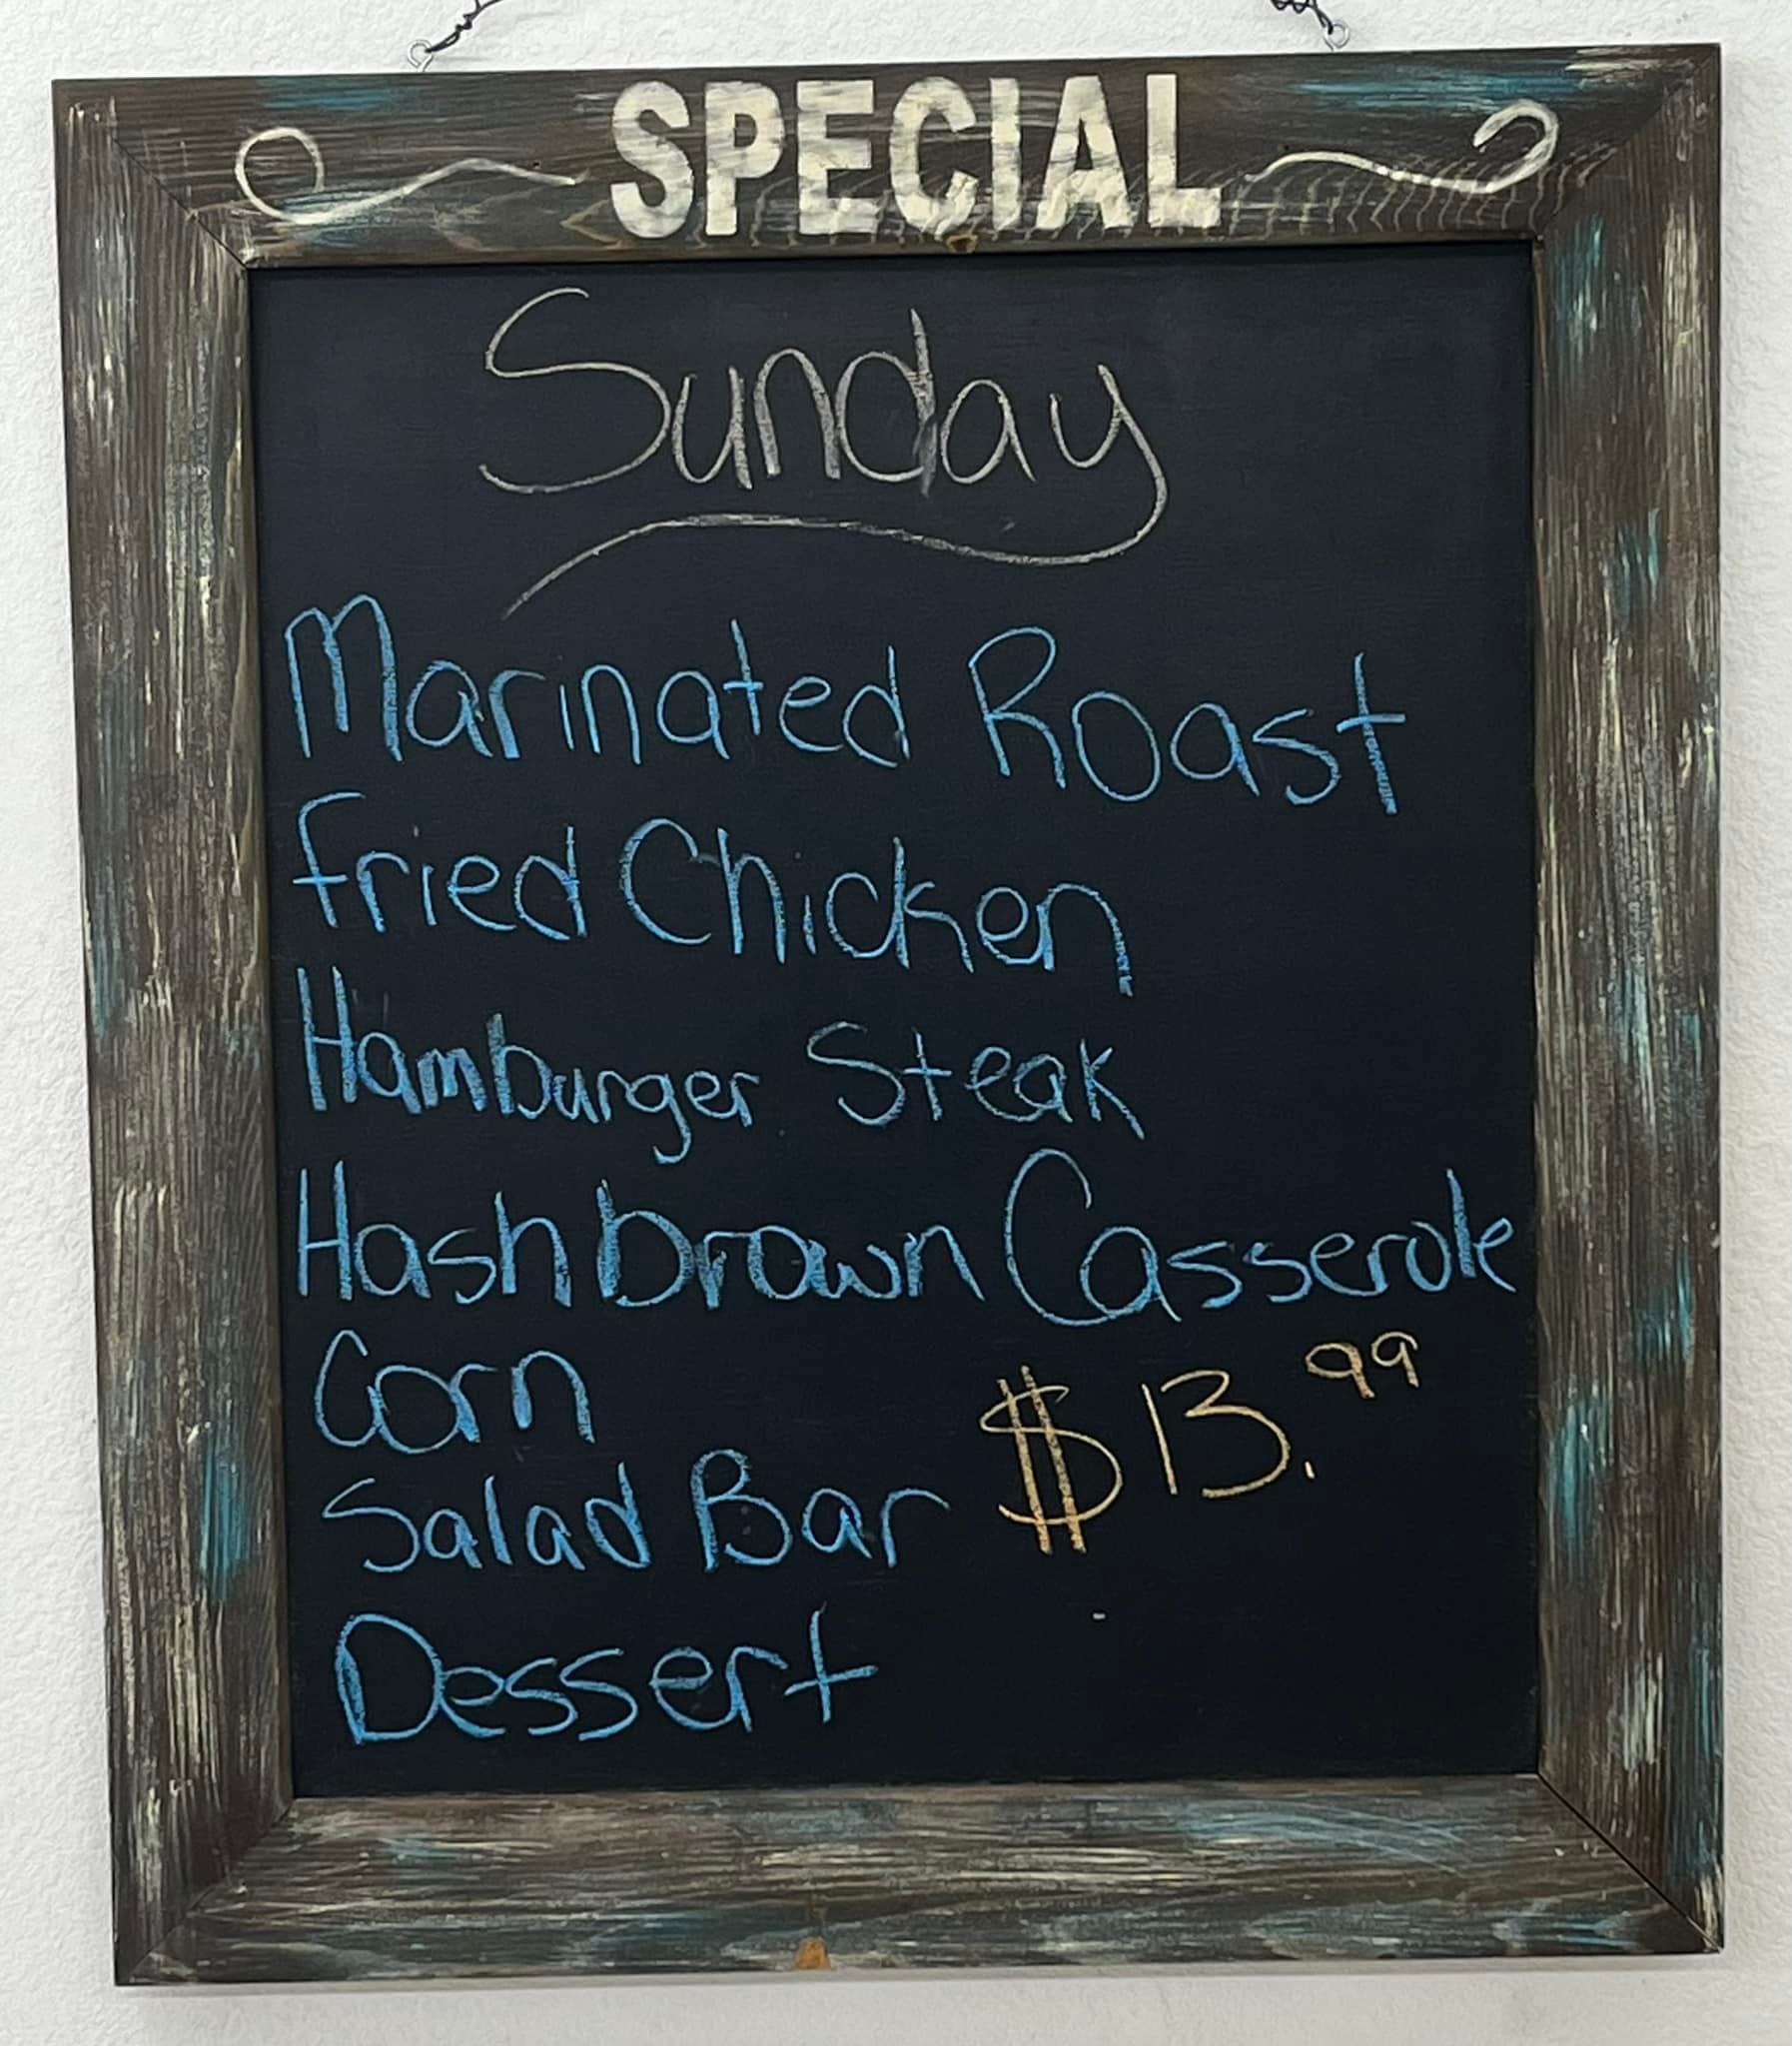 SPECIAL
Sunday
Marinated Roast
Fried Chicken
Hamburger Steak
Hashbrown Casserole
Corn
$13.99
Salad Bar
Dessert